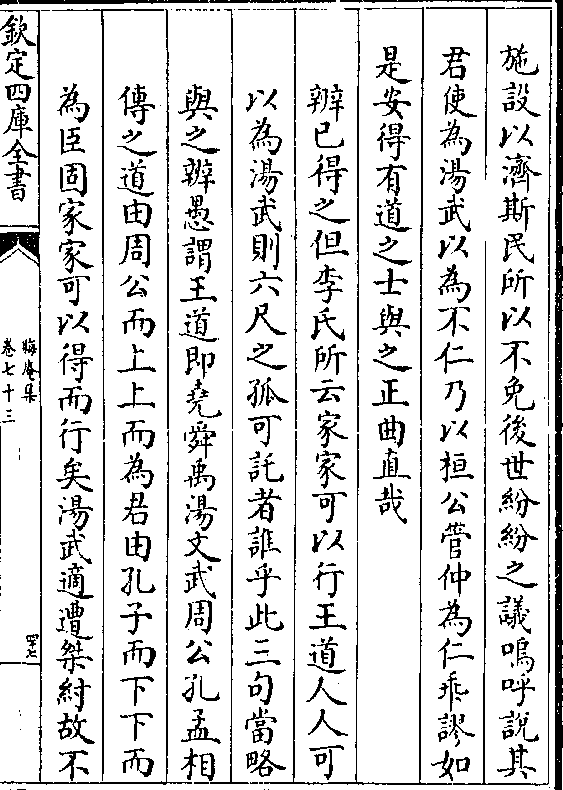 施設以濟斯民所以不免後世紛紛之議嗚呼說其
君使為湯武以為不仁乃以桓公管仲為仁乖謬如
是安得有道之士與之正曲直哉
辨已得之但李氏所云家家可以行王道人人可
以為湯武則六尺之孤可託者誰乎此三句當略
與之辨愚謂王道即堯舜禹湯文武周公孔孟相
傳之道由周公而上上而為君由孔子而下下而
為臣固家家可以得而行矣湯武適遭桀紂故不
欽定四庫全書
晦庵集
卷七十三
四七